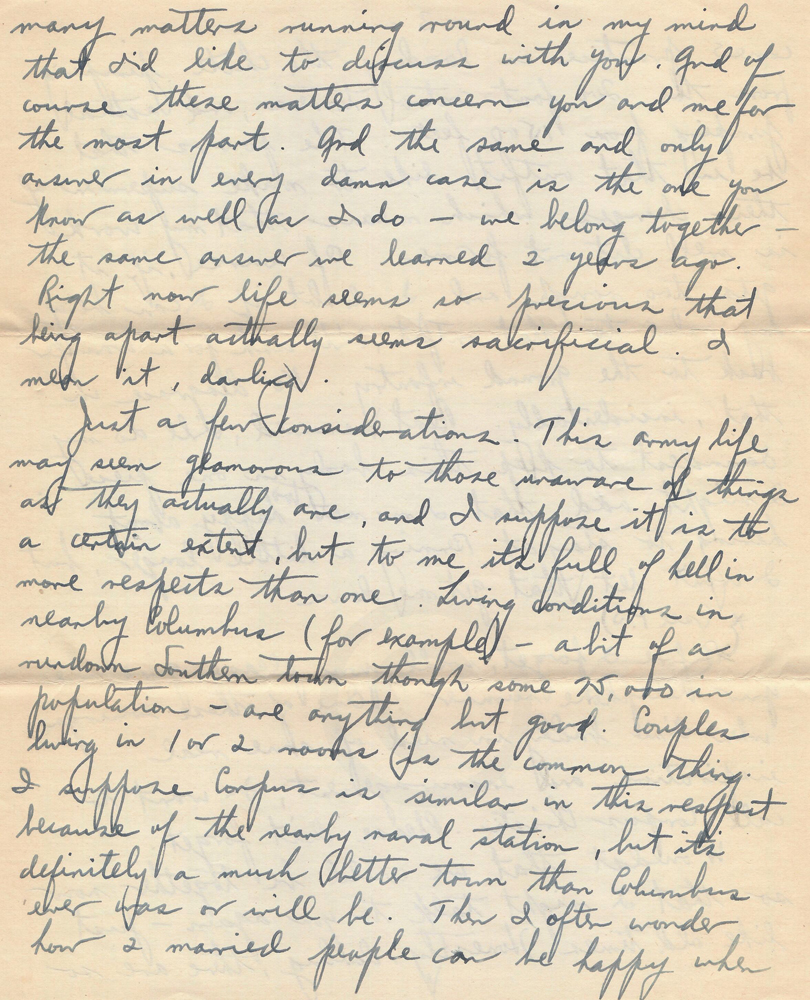 many matters running round in my mind
that I'd like to discuss with you. And of
course these matters concern you and me for
the most part. And the same and only
answer in every damn case is the one you
know as well as I do – we belong together –
the same answer we learned 2 years ago.
Right now life seems so precious that
being apart actually seems sacrificial. I
mean it, darling.
Just a few considerations. This army life
may seem glamorous to those unaware of things
as they actually are, and I suppose it is to
a certain extent, but to me its full of hell in
more respects than one. Living conditions in
nearby Columbus (for example) – a bit of a
rundown Southern town though some 75,000 in
population – are anything but good. Couples
living in 1 or 2 rooms is the common thing.
I suppose Corpus is similar in this respect
because of the nearby naval station, but its
definitely a much better town than Columbus
ever was or will be. Then I often wonder
how 2 married people can be happy when